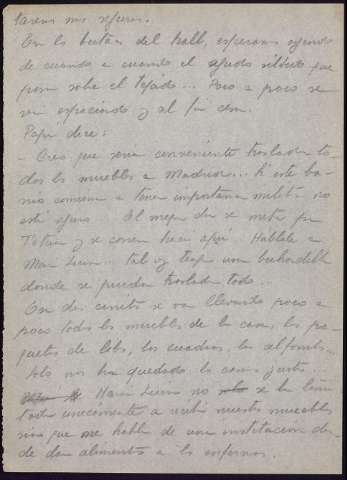 tareas nos esperan.
En las butacas del hall, esperamos oyendo
de cuando a cuando el agudo silbido que
pasa sobre el tejado... Poco a poco se
van espaciando y al fin cesan.
Papá dice:
- Creo que sería conveniente trasladar to-
dos los muebles a Madrid... Si este ba-
rrio comienza a tener importancia militar no
está seguro. El mejor día se meten por
y se corren hacia aquí. Háblale a
María Luisa... tal vez tenga una buhardilla
donde se puedan trasladar todo...
En dos carritos se van llevando poco a
poco todos los muebles de la casa, los pa-
quetes de libros, los cuadros, las alfombras...
Solo nos han quedado las camas justas...
María Luisa no se ha limi-
tado únicamente a recibir nuestros muebles
sino que me habla de una institución don-
de dan alimentos a los enfermos.